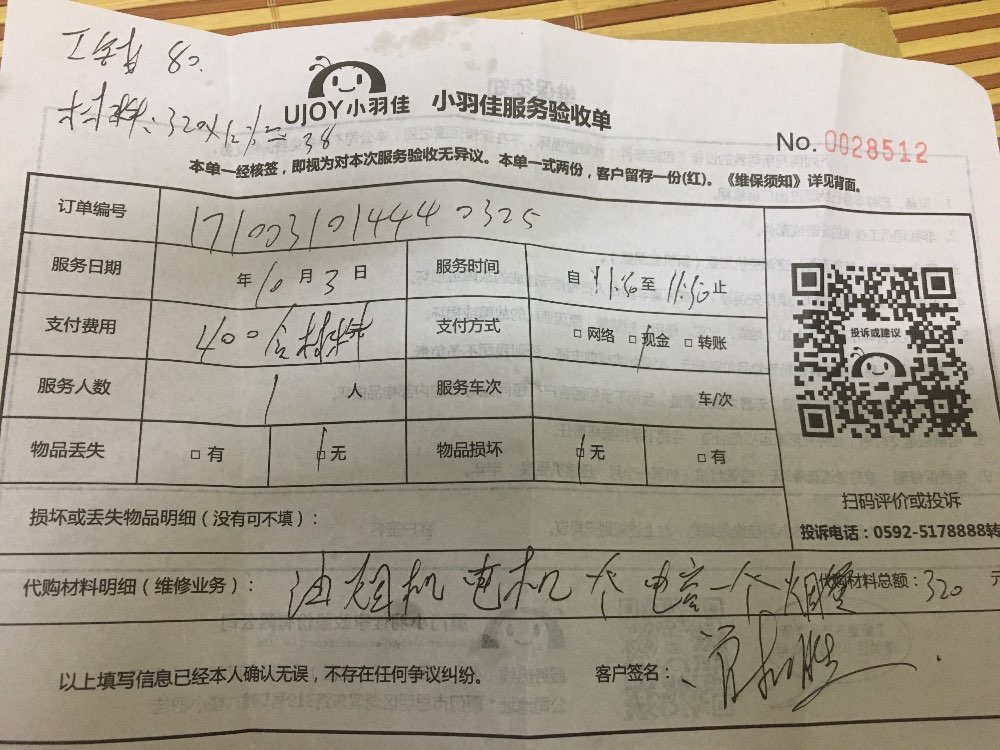 80
材料：320×12%=38
UJOY小羽佳 小羽佳服务验收单
No. 0028512
本单一经核签，即视为对本次服务验收无异议。本单一式两份，客户留存一份(红)。《维保须知》详见背面。
订单编号 171003101444 0325
服务日期 年 10 月 3 日 服务时间 自 至 止
支付费用 400含材料 支付方式 □ 网络 □ 现金 □ 转账
服务人数 1 人 服务车次 车/次
物品丢失 □ 有 □ 无 物品损坏 □ 无 □ 有
投诉或建议
扫码评价或投诉
投诉电话：0592-5178888转
损坏或丢失物品明细（没有可不填）：
代购材料明细（维修业务）： 油烟机 电机 个 电容一个 烟管 代购材料总额： 320 元
以上填写信息已经本人确认无误，不存在任何争议纠纷。 客户签名：